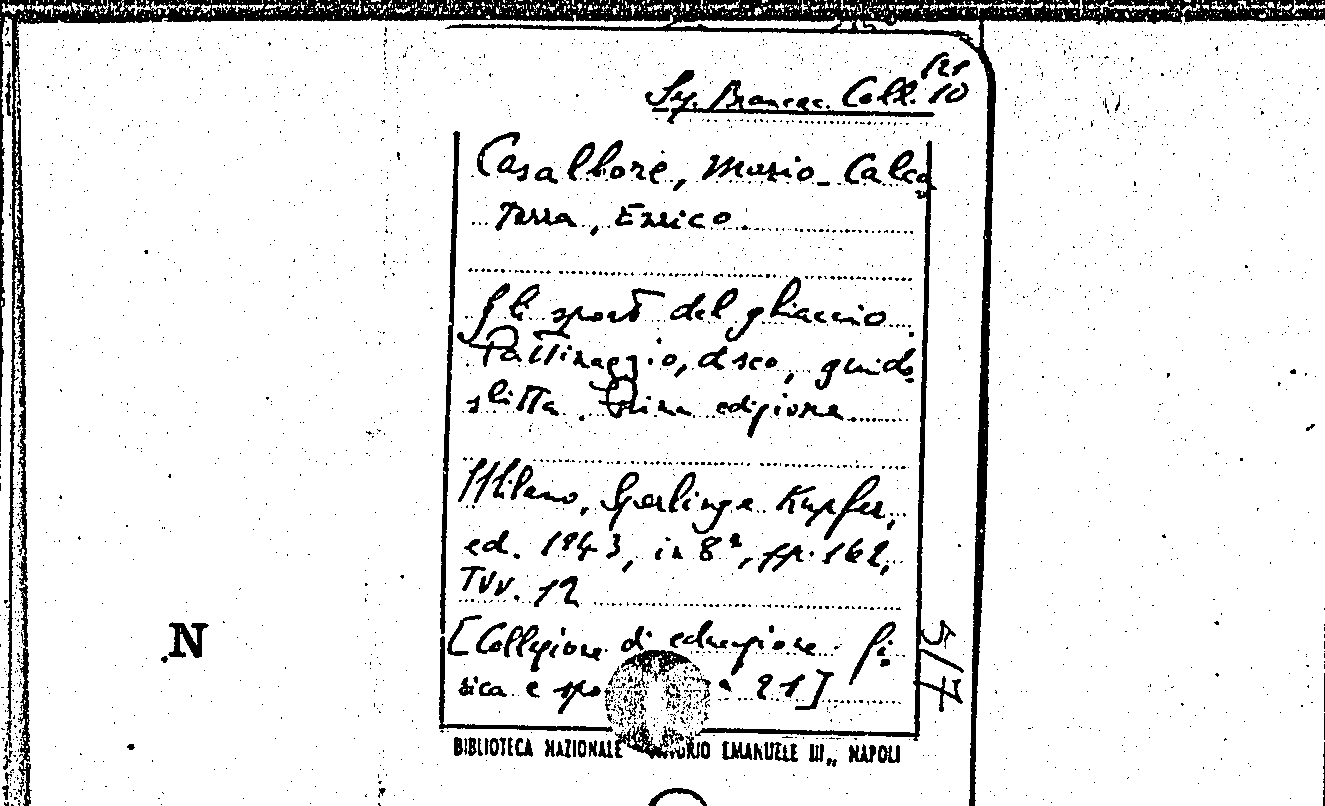 121
Sez. Brancac. Coll. 10
Casalbore, Mario - Calca
terra, Enrico.
Gli sport del ghiaccio.
Pattinaggio, disco, guido
slitta. Prima edizione
Milano, Sperling e Kupfer,
ed. 1943, in 8°, pp. 162,
Tvv. 12
[Collezione di educazione fi-
sica e spo 21]
5/7
N
BIBLIOTECA NAZIONALE EMANUELE III,, NAPOLI